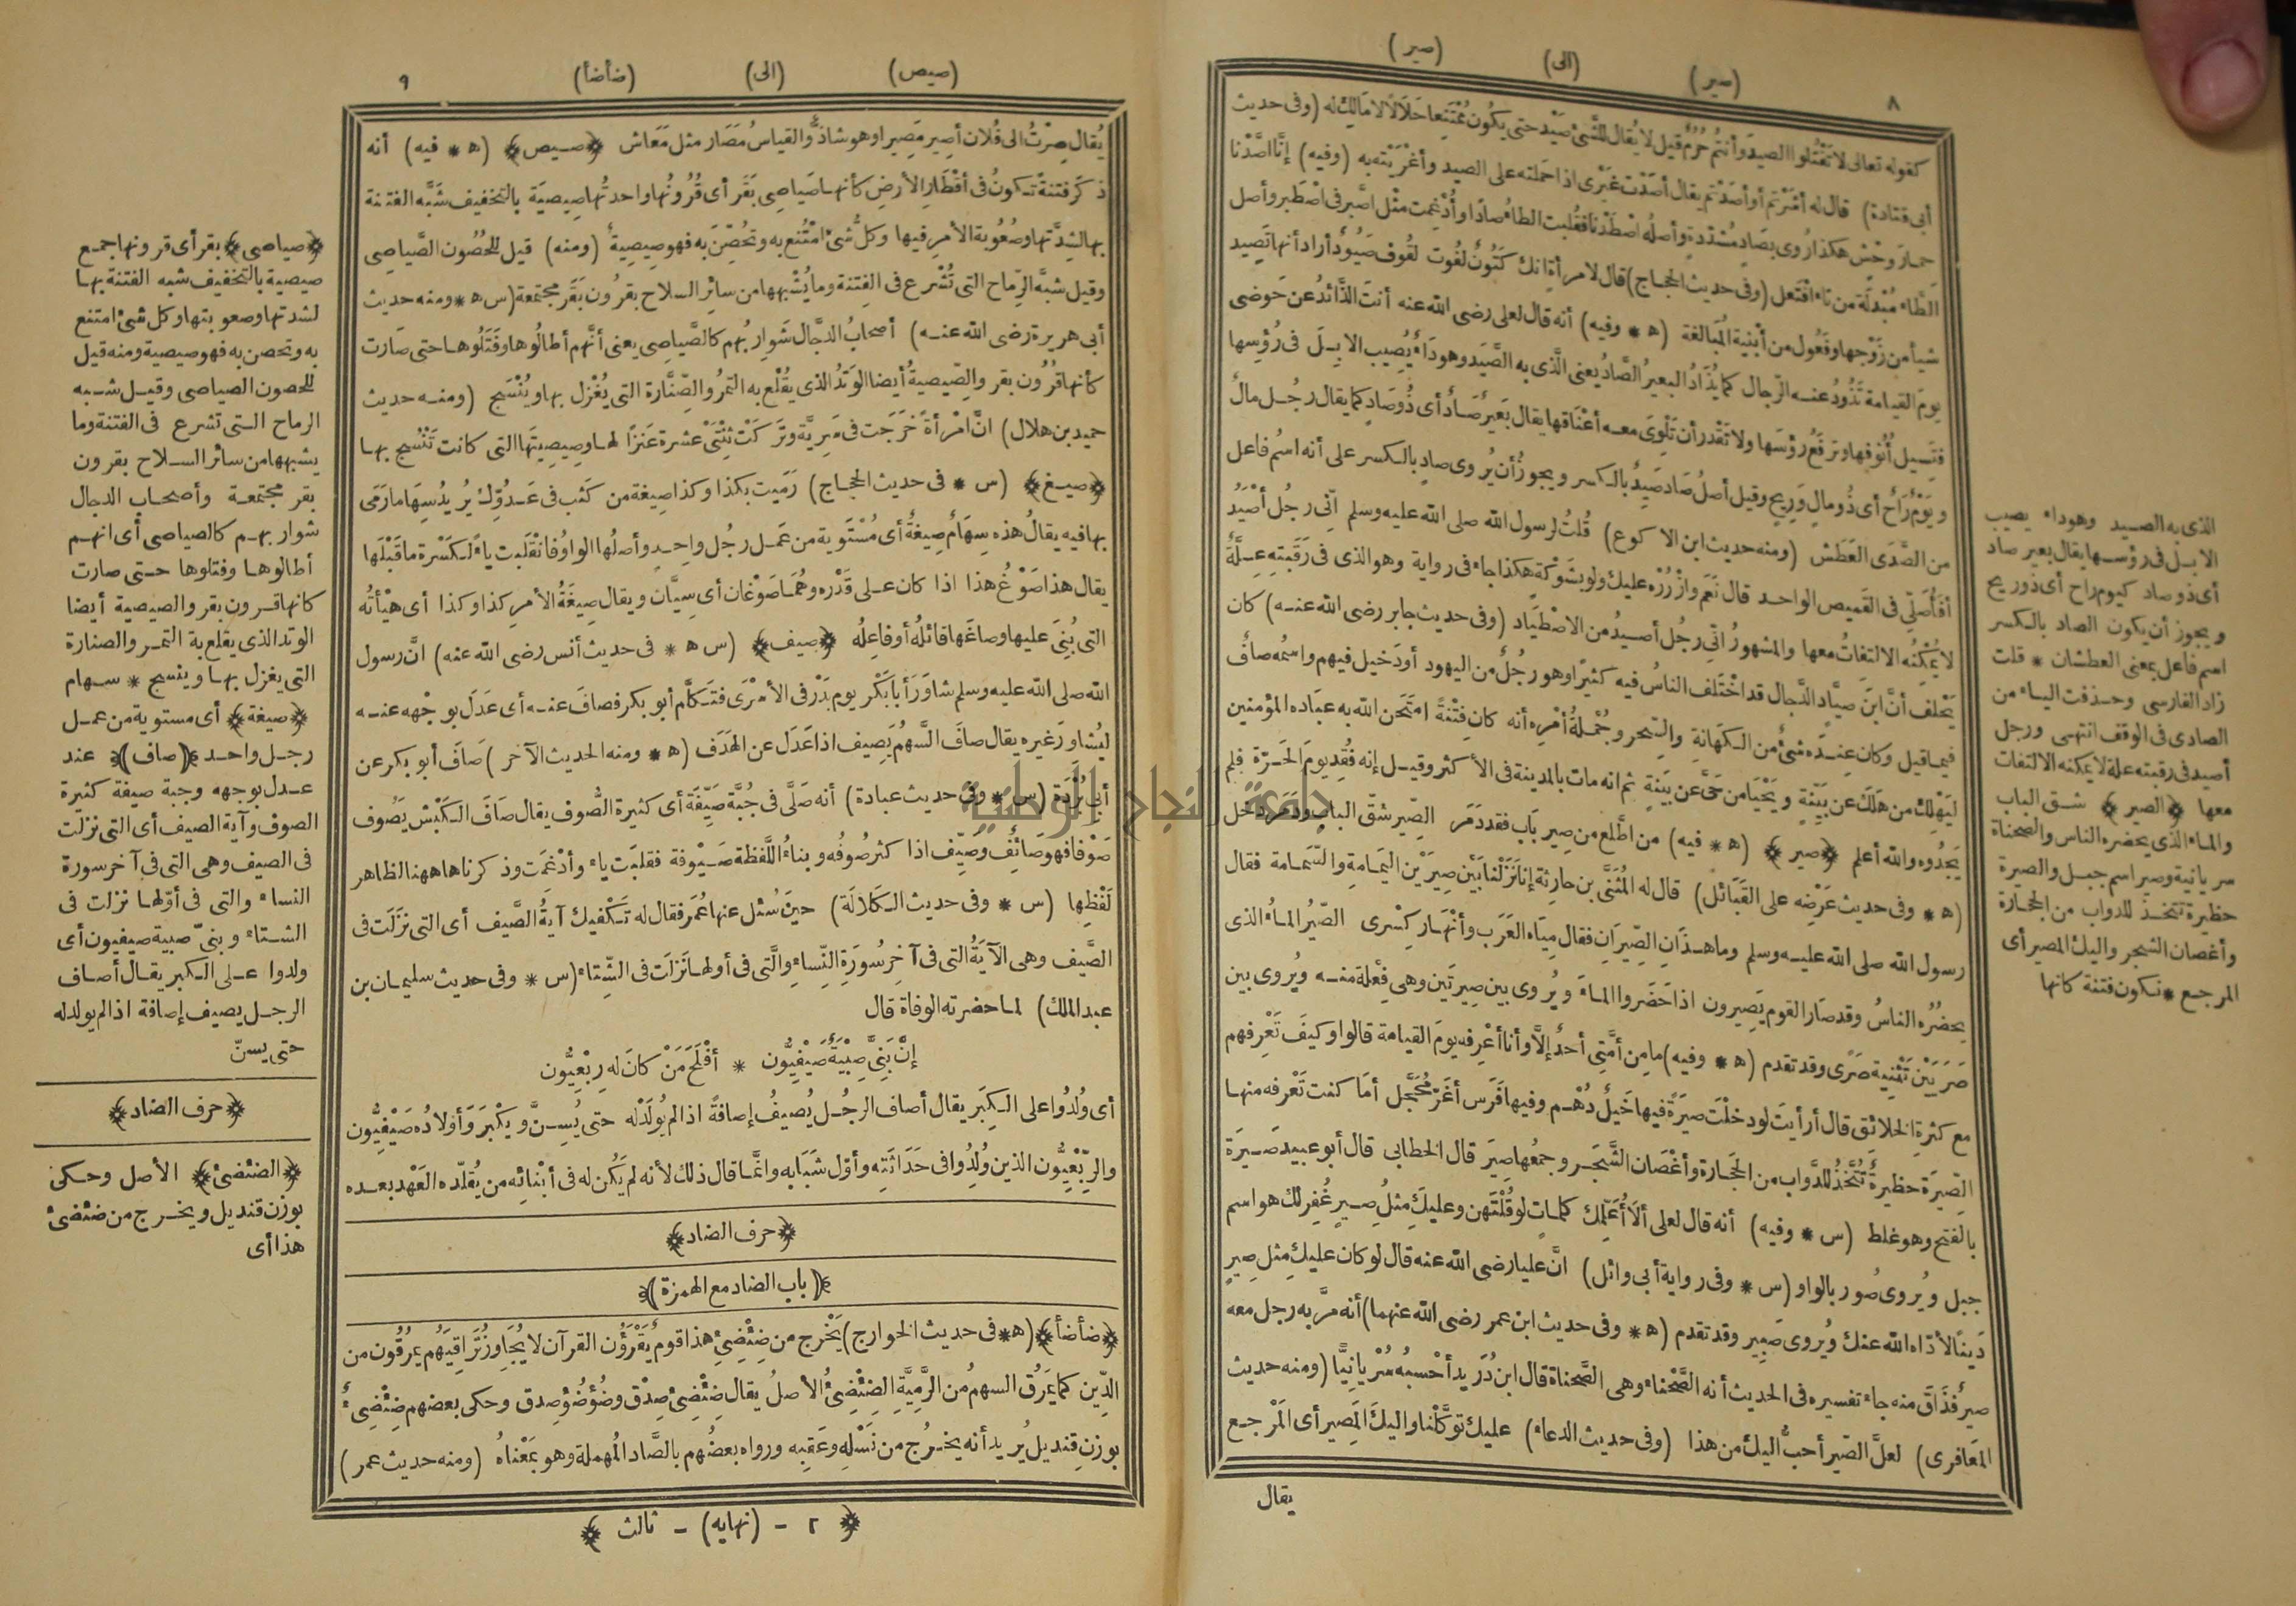 ٨ (صير) (الى) (صير)
كقوله تعالى لا تَقْتُلوا الصيدَ وأنتم حُرُمٌ قيل لا يُقال للشَّئ صَيْد حتى يكُون مُمْتَنِعا حَلَالًا لا مَالِكَ له (وفى حديث
أبى قتادة) قال له أشَرْتم أو أصَدْتم يقال أصَدْت غَيْرى اذا حَملته على الصيد وأغْرَيْته به (وفيه) إنَّا اصَّدْنا
حِمارَ وحْش هكذا رُوى بصَادٍ مُشَدّدةٍ وأصلُه اصْطَدْنا فقُلبت الطاءُ صادًا وأُدْغِمت مثْل اصَّبر فى اصْطَبر وأصل
الطَّاء مُبْدلَة من تاء افْتَعل (وفى حديث الحجاج) قال لامرأة انك كَتُونٌ لفُوت لقُوف صَيُودٌ أراد أنها تَصِيد
شيأ من زَوْجها وفَعُول من أبْنية المُبَالغة (ه * وفيه) أنه قال لعلى رضى الله عنه أنتَ الذَّائدُ عن حَوضى
يومَ القيامة تَذُودُ عنه الرّجال كما يُذَادُ البعيرُ الصَّادُ يعنى الَّذى به الصَّيَد وهو دَاءٌ يُصِيب الابِلَ فى رُؤسِها
فتَسِيل أُنُوفها وترفَعُ رؤسَها ولا تَقْدر أن تَلْوِىَ معه أعْنَاقها يقال بَعيرٌ صَادٌ أى ذُو صَادٍ كما يقال رجُل مالٌ
ويَوْمٌ رَاحٌ أى ذُو مالٍ ورِيحٍ وقيل أصلُ صَاد صَيِدٌ بالكسر ويجوزُ أن يُروى صادٍ بالكسر على أنه اسُم فاعل
من الصَّدَى العَطَش (ومنه حديث ابن الاكوع) قُلتُ لرسول الله صلى الله عليه وسلم إنّى رجُل أصْيَدُ
أفأُصَلّى فى القَميص الواحد قال نَعَم وازْرُرْه عليك ولو بشَوْكَةٍ هكذا جاء فى رواية وهو الذى فى رَقَبتِهِ عِلَّةٌ
لا يُمْكِنُه الالتِفاتُ معها والمشهورُ انّى رجُل أصيدُ من الاصْطِيَاد (وفى حديث جابر رضى الله عنه) كان
يَحْلف أنَّ ابنَ صيَّادٍ الدَّجال قد اخْتَلف الناسُ فيه كثيرًا وهو رجُلٌ من اليهود أو دَخيل فيهم واسمُه صافٌ
فيما قيل وكان عِنْدَه شئٌ من الكهَانةِ والسِّحر وجُمْلةُ أمْرِه أنه كان فِتْنةً امتَحَن الله به عبَاده المؤمنين
ليَهْلِكَ من هَلَكَ عن بَيّنةٍ ويَحْيَا من حَىَّ عن بيّنةٍ ثم انه مات بالمدينة فى الأكثر وقيل إنه فُقِد يومَ الحَرّة فلم
يَجدُوه والله أعلم ﴿صير﴾ (ه * فيه) من اطَّلع من صِير بَاب فقد دَمَر الصِّير شقّ الباب ودَمَر دخل
(ه * وفى حديث عَرْضِه على القَبَائل) قال له المُثَنَّى بن حارِثة إنا نَزَلنا بَيْن صِيرَيْن اليَمامةِ والسَّمَامة فقال
رسول الله صلى الله عليه وسلم وما هذَانِ الصِّيرانِ فقال مِيَاه العَرَب وأنْهار كِسْرى الصِّيرُ الماءُ الذى
يحضُرُه الناسُ وقد صَار القوم يَصِيرون اذا حَضَروا الماءَ ويُروى بين صِيرتَين وهى فِعْلة منه ويُروى بين
صَرَيَيْن تَثْنِية صَرًى وقد تقدم (ه * وفيه) ما من أُمَّتى أحدٌ إلَّا وأنا أعْرِفه يومَ القيامة قالوا وكيفَ تَعْرفهم
مع كثرةِ الخلائقِ قال أرأيتَ لو دخلْتَ صيرَةً فيها خَيلٌ دُهْم وفيها فَرَس أغَرّ مُحَجَّل أمَا كنت تَعْرفه منها
الصِّيرَة حظيرةٌ تُتَّخذُ للدَّواب من الحجَارة وأغْصَان الشَّجَر وجمعُها صِيَر قال الخطابى قال أبو عبيد صَيرَة
بالفتح وهو غلط (س * وفيه) أنه قال لعلى ألَا أُعَلِّمك كلماتٍ لو قُلْتَهن وعليك مثلُ صِيرٍ غُفِر لك هو اسم
جبل ويُروى صُور بالواو (س * وفى رواية أبى وائل) انَّ عليا رضى الله عنه قال لو كان عليكَ مِثل صِيرٍ
دَينًا لأدّاه الله عنك ويُروى صَبِير وقد تقدم (ه * وفى حديث ابن عمر رضى الله عنهما) أنه مرَّ به رجل معه
صيرٌ فذَاقَ منه جاءَ تفسيره فى الحديث أنه الصَّحْناء وهى الصَّحناة قال ابن دُرَيد أحْسبُه سُرْيانِيًّا (ومنه حديث
المَعَافرى) لعلَّ الصِّير أحبُّ اليك من هذا (وفى حديث الدعاء) عليك توكَّلْنا واليكَ المَصير أى المَرْجِع
يقال
الذى به الصيد وهو داء يصيب
الابل فى رؤسها يقال بعير صاد
أى ذو صاد كيوم راح أى ذو ريح
ويجوز أن يكون الصاد بالكسر
اسم فاعل بمعنى العطشان * قلت
زاد الفارسى وحذفت الياء من
الصادى فى الوقف انتهى ورجل
أصيد فى رقبته علة لا يمكنه الالتفات
معها ﴿الصير﴾ شق الباب
والماء الذى يحضره الناس والصحناة
سريانية وصير اسم جبل والصيرة
حظيرة تتخذ للدواب من الحجارة
وأغصان الشجر واليك المصير أى
المرجع * تكون فتنة كانها
(صيص) (الى) (ضأضأ) ٩
يُقال صِرْتُ الى فُلان أصِير مَصِيرا وهو شاذٌّ والقياسُ مَصَار مثل مَعَاش ﴿صيص﴾ (ه * فيه) أنه
ذكَر فتنةً تكونُ فى أقْطَارِ الأرض كأنها صَياصِى بَقَر أى قُرُونُها واحدتُها صِيصِيَة بالتخفيف شَبَّه الفتنة
بها لشِدَّتها وصُعُوبة الأمر فيها وكلُّ شئ امْتُنِع به وتُحُصِّنَ به فهو صِيصِيةٌ (ومنه) قيل للحُصُون الصَّياصِى
وقيل شبَّه الرِّماح التى تُشْرع فى الفِتنة وما يُشْبهها من سائر السلاح بقرُون بَقَر مجتمعة (س ه * ومنه حديث
أبى هريرة رضى الله عنه) أصحابُ الدَّجَّال شَوارِبُهم كالصَّياصِى يعنى أنَّهم أطالُوها وفَتَلُوها حتى صَارت
كأنها قرُون بقر والصِّيصيةُ أيضا الوَتدُ الذى يُقْلَع به التمرُ والصِّنَّارة التى يُغْزل بها ويُنْسَج (ومنه حديث
حميد بن هلال) انَّ امْرأةً خَرَجت فى سَرِيَّة وتَركَتْ ثِنْتَىْ عشرةَ عَنزًا لها وصِيصِيَتَها التى كانت تَنْسُج بها
﴿صيغ﴾ (س * فى حديث الحجاج) رَمَيت بكذا وكذا صِيغة من كَثَب فى عَدُوّك يُريدُ سِهَاما رَمَى
بها فيه يقالُ هذه سِهَامٌ صِيغةٌ أى مُسْتَوية من عَمَل رجُل واحِدٍ وأصلُها الواوُ فانْقَلبت ياءً لكَسْرة ما قَبْلَها
يقال هذا صَوْغُ هذا اذا كان على قَدْره وهُمَا صَوْغَان أى سِيَّان ويقال صِيغَةُ الأمرِ كذا وكذا أى هيْأَتُه
التى بُنِىَ عليها وصاغَها قائلُه أو فاعِلُه ﴿صيف﴾ (س ه * فى حديث أنس رضى الله عنه) انَّ رسول
الله صلى الله عليه وسلم شاوَرَ أبا بَكْر يوم بَدْر فى الأسْرَى فتَكلَّم أبو بكر فصافَ عنه أى عَدَل بوجْهه عنه
ليُشاوِرَ غيره يقال صافَ السَّهمُ يَصِيف اذا عَدَل عن الهَدَف (ه * ومنه الحديث الآخر) صَافَ أبو بكر عن
أبى بُرْدَة (س * وفى حديث عبادة) أنه صَلَّى فى جُبَّة صَيِّفَة أى كثيرة الصُّوف يقال صَافَ الكَبْش يَصُوف
صَوْفا فهو صَائفٌ وصَيِّف اذا كثر صُوفُه وبناءُ اللَّفظة صَيْوِفة فقلبَت ياء وأُدْغمَت وذكرناها ههنا لظاهر
لَفْظِها (س * وفى حديث الكَلالَة) حينَ سُئل عنها عُمَر فقال له تكْفيك آيةُ الصَّيف أى التى نزَلَت فى
الصَّيف وهى الآيَةُ التى فى آخِر سُورَةِ النِّساء والَّتى فى أولها نَزلَت فى الشِّتاء (س * وفى حديث سليمان بن
عبد الملك) لما حضرته الوفاة قال
إنَّ بَنِىَّ صِبْيَةٌ صَيْفِيُّون * أفْلَحَ مَنْ كانَ له رِبْعِيُّون
أى وُلِدُوا على الكِبَر يقال أصاف الرجُل يُصيفُ إصافةً اذا لم يُولَدْ له حتى يُسِنَّ ويكْبَر وَأوْلادُه صَيْفِيُّون
والرِّبْعيُّون الذين وُلِدُوا فى حَدَاثَتِه وأوّل شَبَابِه وانَّما قال ذلك لأنه لم يكُن له فى أبْنائه من يُقلّده العَهْد بعده
﴿حرف الضاد﴾
(باب الضاد مع الهمزة)
﴿ضأضأ﴾ (ه * فى حديث الخوارج) يَخْرج من ضِئْضِئ هذا قومٌ يَقْرَؤُن القرآن لا يُجَاوزُ تَرَاقِيَهُم يمرُقُون من
الدِّين كما يَمرُق السهمُ من الرَّمِيَّةِ الضِئْضِئُ الأصلُ يقال ضِئْضِئُ صِدْق وضُؤْضُؤُ صدق وحكى بعضهم ضِئْضِىء
بوزنِ قنديل يُريد أنه يخرُج من نَسْلِه وعَقِبِه ورواه بعضُهم بالصَّاد المُهملة وهو بمَعْناهُ (ومنه حديث عمر)
﴿ ٢ - (نهايه) - ثالث ﴾
﴿صياصى﴾ بقر أى قرونها جمع
صيصية بالتخفيف شبه الفتنة بها
لشدتها وصعوبتها وكل شئ امتنع
به وتحصن به فهو صيصية ومنه قيل
للحصون الصياصى وقيل شبه
الرماح التى تشرع فى الفتنة وما
يشبهها من سائر السلاح بقرون
بقر مجتمعة وأصحاب الدجال
شواربهم كالصياصى أى انهم
أطالوها وفتلوها حتى صارت
كانها قرون بقر والصيصية أيضا
الوتد الذى يقلع به التمر والصنارة
التى يغزل بها وينسج * سهام
﴿صيغة﴾ أى مستوية من عمل
رجل واحد ﴿صاف﴾ عند
عدل بوجهه وجبة صيفة كثيرة
الصوف وآية الصيف أى التى نزلت
فى الصيف وهى التى فى آخر سورة
النساء والتى فى أولها نزلت فى
الشتاء وبنىّ صبية صيفيون أى
ولدوا على الكبر يقال أصاف
الرجل يصيف إصافة اذا لم يولد له
حتى يسنّ
﴿حرف الضاد﴾
﴿الضئضئ﴾ الأصل وحكى
بوزن قنديل ويخرج من ضئضئ
هذا أى
جامعة النجاح الوطنية